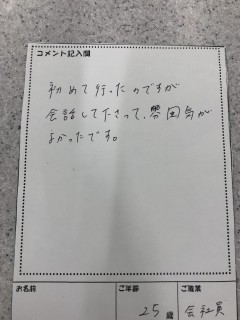 コメント記入欄
初めて行ったのですが
会話して下さって、雰囲気が
よかったです。
お名前
ご年齢
ご職業
25 歳
会社員